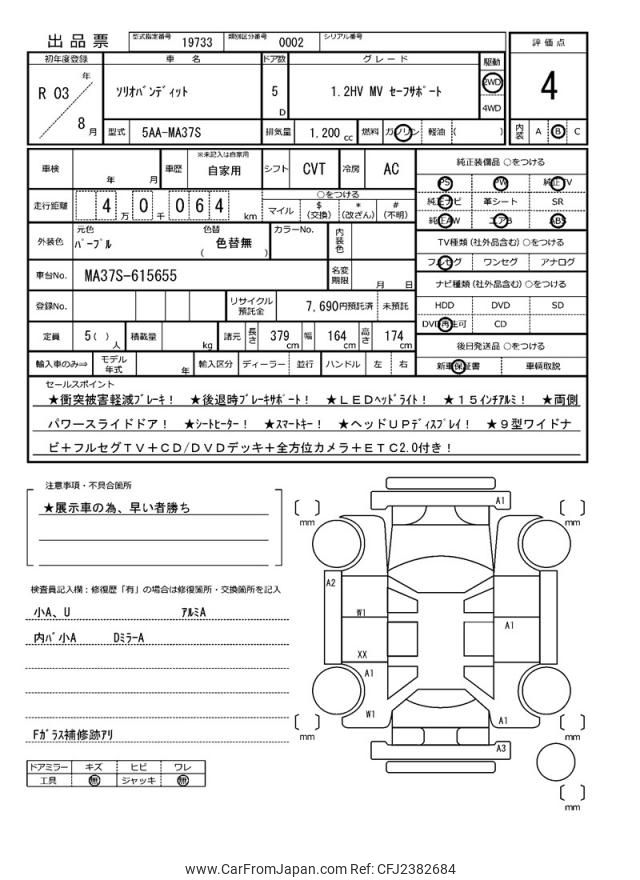 出品票 型式指定番号 19733 類別区分番号 0002 シリアル番号
評価点
初年度登録 車名 ドア数 グレード 駆動
R 03 年 8 月 ソリオバンディット 5 D 1.2HV MV セーフサポート 2WD 4WD
4
型式 5AA-MA37S 排気量 1.200 cc 燃料 ガソリン 軽油 ( )
内装 A B C
車検 年 月 車歴 ※未記入は自家用 自家用 シフト CVT 冷房 AC
純正装備品 ○をつける
PS PW 純正TV
純正ナビ 革シート SR
純正AW エアB ABS
走行距離 4 万 0 千 0 6 4 km
○をつける
マイル $(交換) *(改ざん) #(不明)
外装色 元色 パープル 色替 ( 色替無 ) カラーNo. 内装色
TV種類 (社外品含む) ○をつける
フルセグ ワンセグ アナログ
車台No. MA37S-615655 名変期限 月 日
ナビ種類 (社外品含む) ○をつける
HDD DVD SD
DVD再生可 CD
登録No. リサイクル預託金 7,690円預託済 未預託
定員 5( ) 人 積載量 kg 諸元 長さ 379 cm 幅 164 cm 高さ 174 cm
後日発送品 ○をつける
新車保証書 車輌取説
輸入車のみ⇒ モデル年式 年 輸入区分 ディーラー 並行 ハンドル 左 右
セールスポイント
★衝突被害軽減ブレーキ! ★後退時ブレーキサポート! ★LEDヘッドライト! ★15インチアルミ! ★両側
パワースライドドア! ★シートヒーター! ★スマートキー! ★ヘッドUPディスプレイ! ★9型ワイドナ
ビ+フルセグTV+CD/DVDデッキ+全方位カメラ+ETC2.0付き!
注意事項・不具合箇所
★展示車の為、早い者勝ち
検査員記入欄:修復歴「有」の場合は修復箇所・交換箇所を記入
小A、U アルミA
内バ小A DミラーA
Fガラス補修跡アリ
ドアミラー キズ ヒビ ワレ
工具 無 ジャッキ 無
A1
mm
mm
A2
W1
A1
XX
A1
W1
A1
mm
mm
A3
mm
www.CarFromJapan.com Ref: CFJ2382684